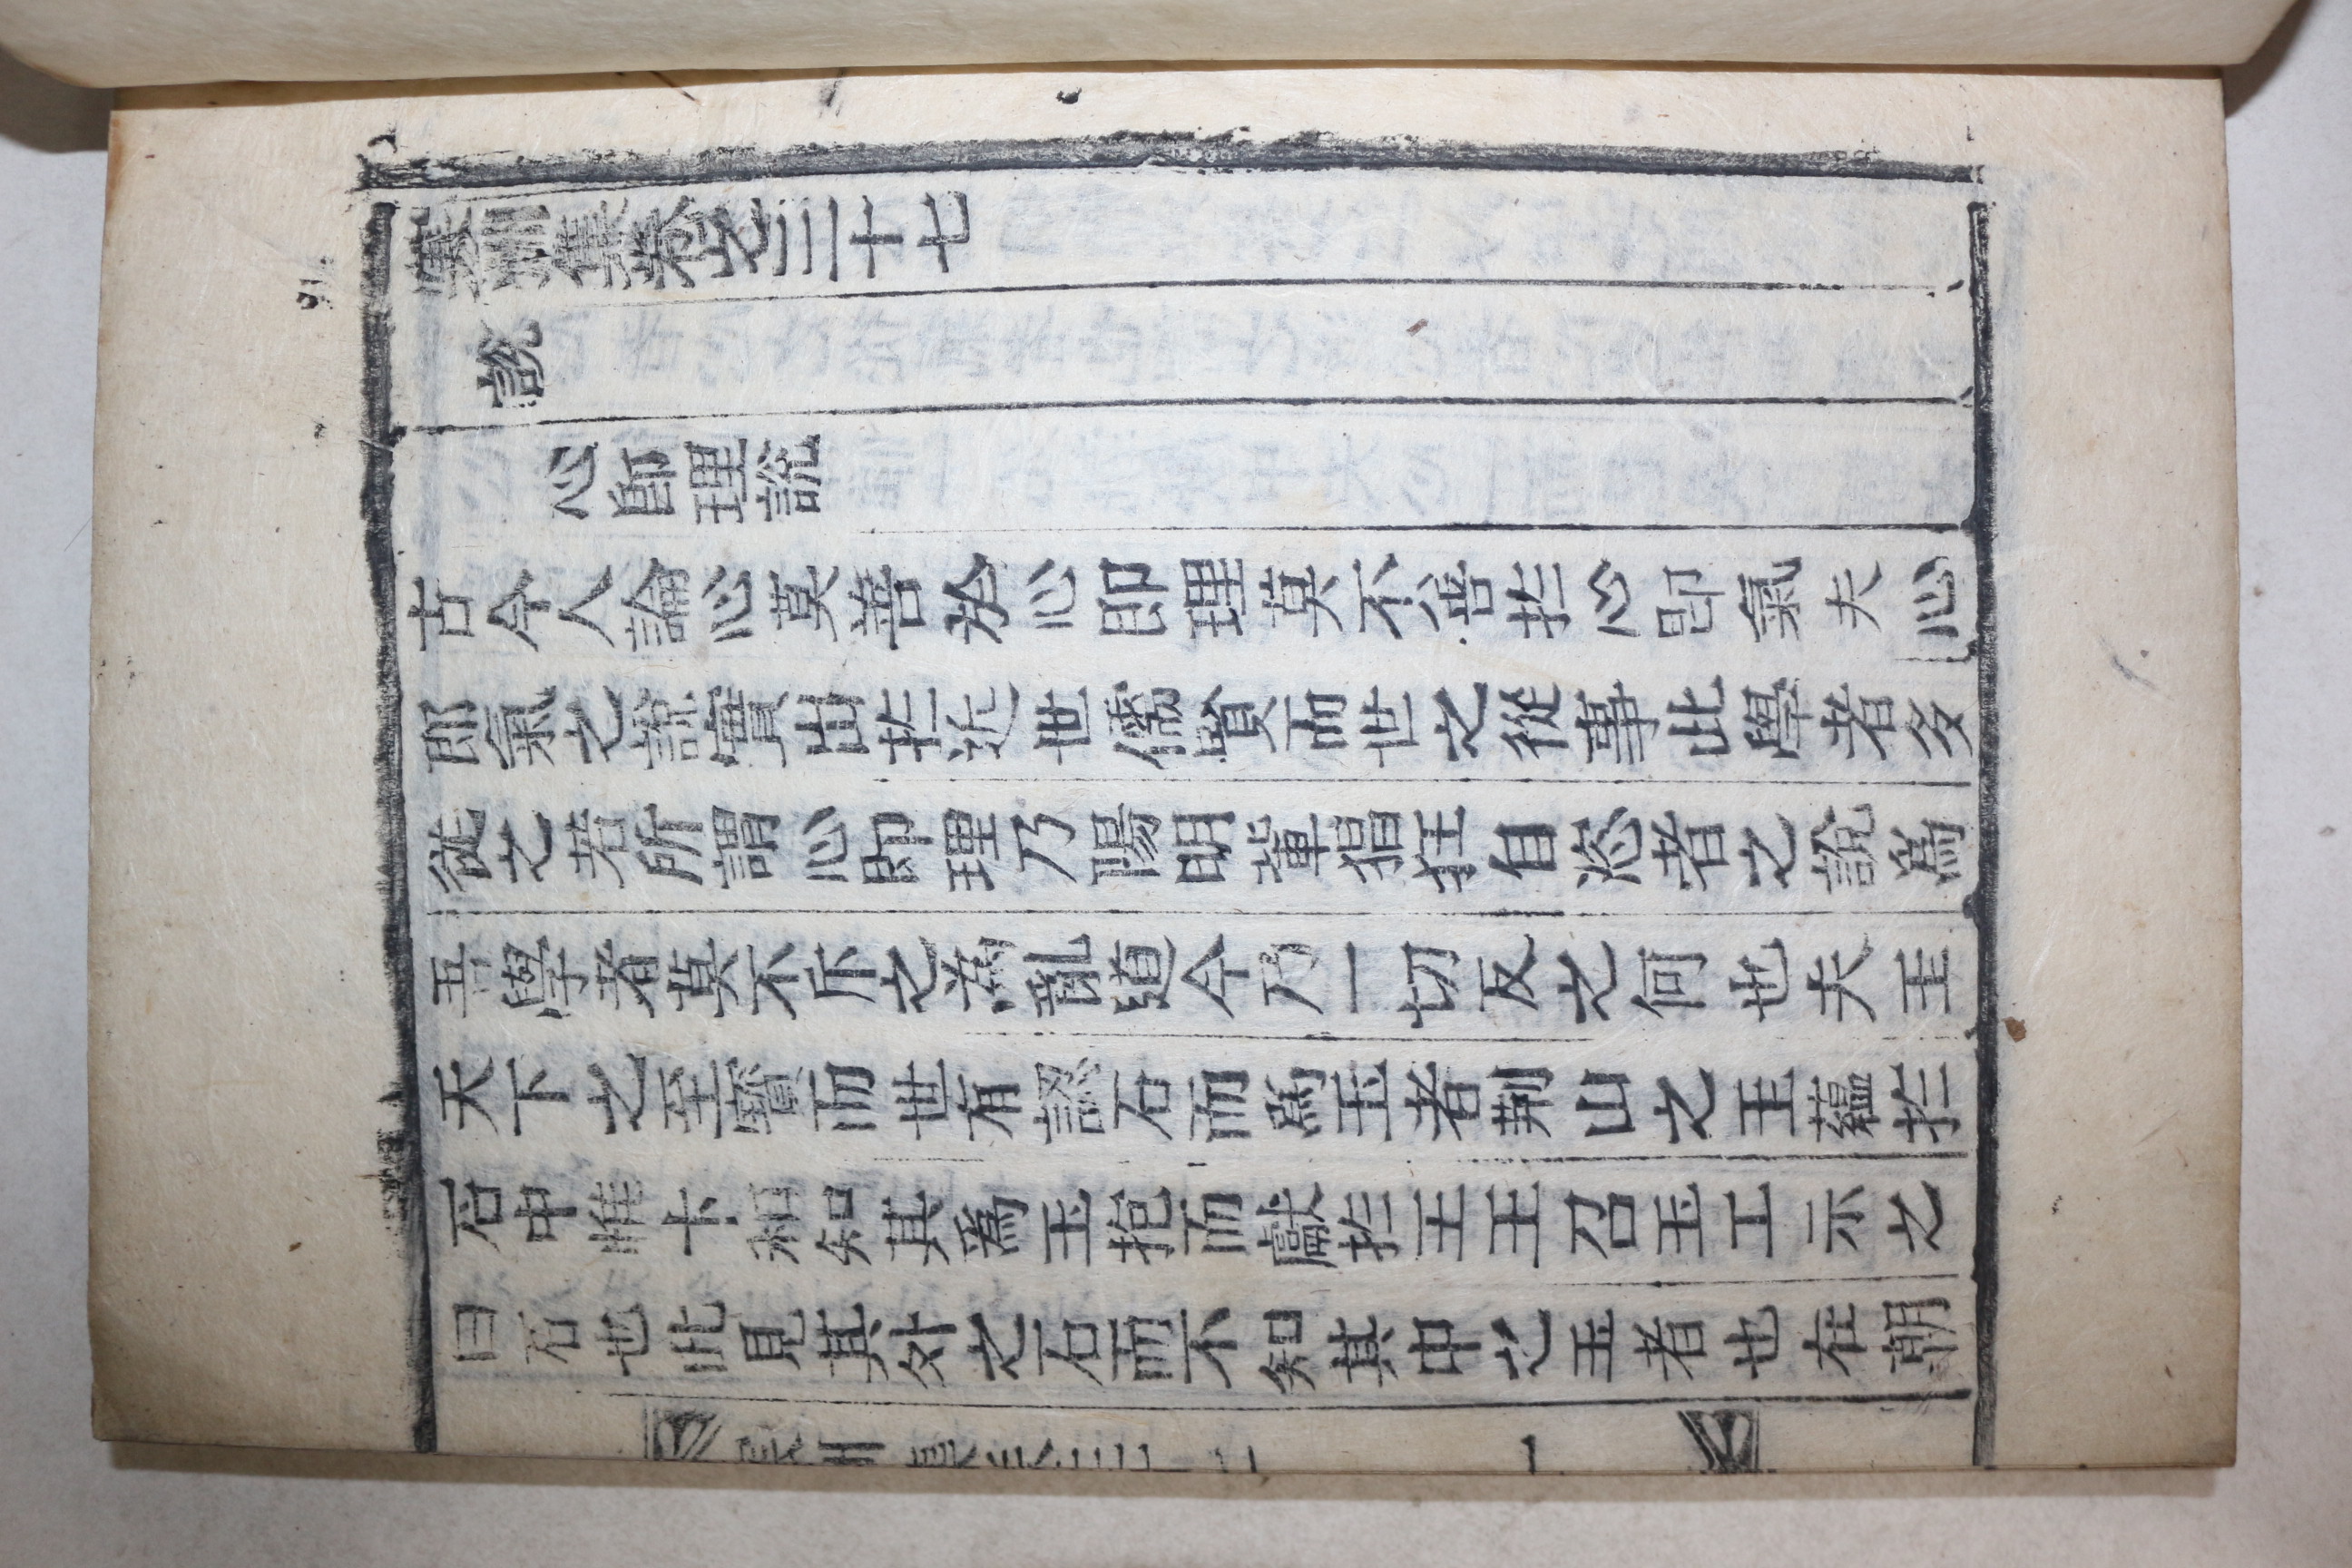 寒洲集卷之三十七
說
心卽理說
古今人論心莫善於心卽理莫不善於心卽氣夫心
卽氣之說實出於近世儒賢而世之從事此學者多
從之若所謂心卽理乃陽明輩猖狂自恣者之說爲
吾學者莫不斥之爲亂道今乃一切反之何也夫玉
天下之至寶而世有認石而爲玉者荆山之玉蘊於
石中惟卞和知其爲玉抱而獻於王王召玉工示之
曰石也此見其外之石而不知其中之玉者也在朝